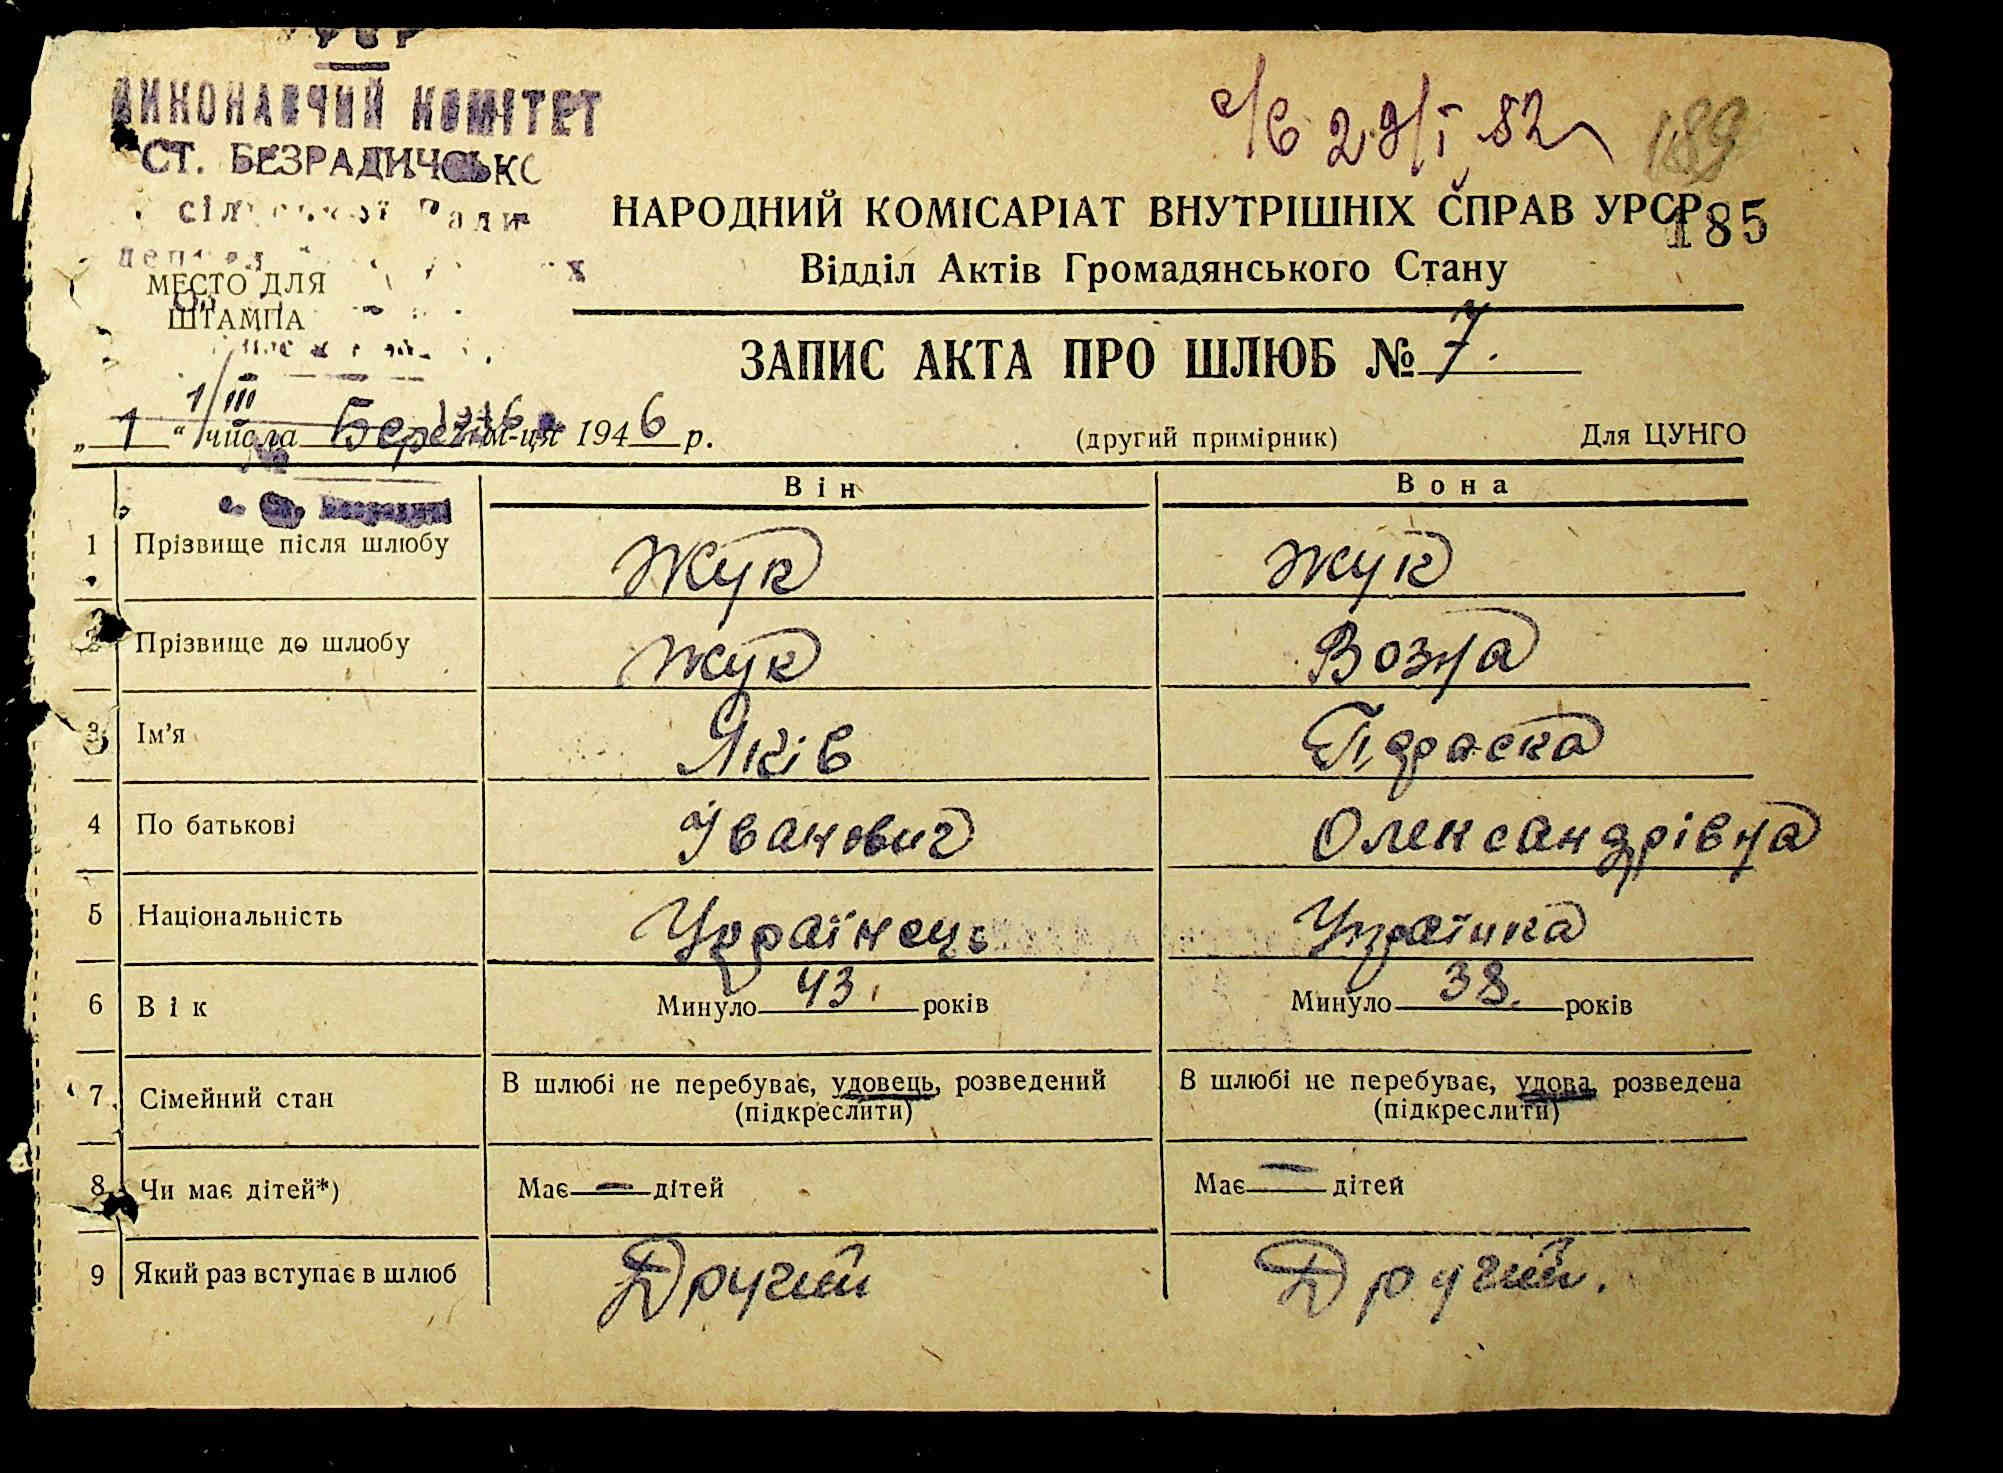 УРСР
ВИКОНАВЧИЙ КОМІТЕТ
СТ. БЕЗРАДИЧСЬКО
сільської Ради
МЕСТО ДЛЯ
ШТАМПА
с/с 29/I 52
189
185
НАРОДНИЙ КОМІСАРІАТ ВНУТРІШНІХ СПРАВ УРСР
Відділ Актів Громадянського Стану
ЗАПИС АКТА ПРО ШЛЮБ № 7.
1/III
„1“ числа Березня м-ця 1946 р. (другий примірник) Для ЦУНГО
Він Вона
1 Прізвище після шлюбу Жук Жук
2 Прізвище до шлюбу Жук Возна
3 Ім'я Яків Підраска
4 По батькові Іванович Олександрівна
5 Національність Українець Українка
6 Вік Минуло 43 років Минуло 38 років
7 Сімейний стан В шлюбі не перебуває, удовець, розведений В шлюбі не перебуває, удова, розведена
(підкреслити) (підкреслити)
8 Чи має дітей*) Має — дітей Має — дітей
9 Який раз вступає в шлюб Другий Другий.